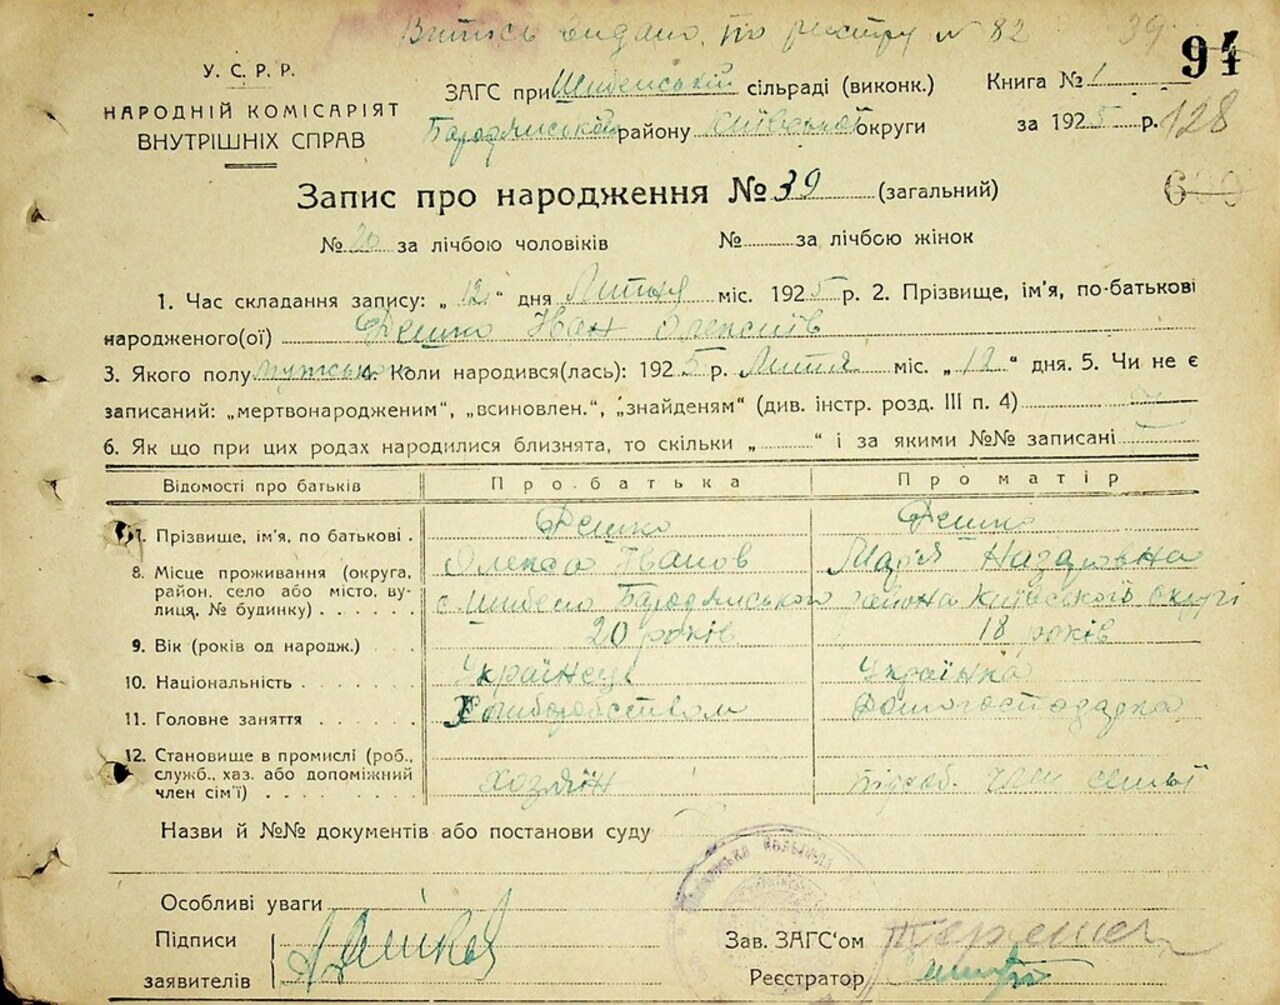 Витись видано по реєстру № 82
39
94
У. С. Р. Р.
НАРОДНІЙ КОМІСАРІЯТ
ВНУТРІШНІХ СПРАВ
ЗАГС при Шибенській сільраді (виконк.)
Бародянського району Київської округи
Книга № 1
за 1925 р.
128
Запис про народження № 39 (загальний)
6
№ 20 за лічбою чоловіків
№ за лічбою жінок
1. Час складання запису: „ 12 “ дня Литня міс. 1925 р. 2. Прізвище, ім'я, по-батькові
народженого(ої) Решко Іван Олексіїв
3. Якого полу мужськ 4. Коли народився(лась): 1925 р. Литня міс. „ 12 “ дня. 5. Чи не є
записаний: „мертвонародженим“, „всиновлен.“, „знайденям“ (див. інстр. розд. III п. 4)
6. Як що при цих родах народилися близнята, то скільки „ “ і за якими №№ записані
Відомості про батьків
Про батька
Про матір
7. Прізвище, ім'я, по батькові .
Олекса Іванов
Марія Назаровна
8. Місце проживання (округа,
район, село або місто, ву-
лиця, № будинку) . . . . . .
с Шибено Бародянського района Київського округі
9. Вік (років од народж.) . . .
20 років
18 років
10. Національність . . . . . . .
Українець
Українка
11. Головне заняття . . . . . .
Хліборобством
Домогосподарка
12. Становище в промислі (роб.,
служб., хаз. або допоміжний
член сім'ї) . . . . . . . . .
хозяїн
підсоб. член семьї
Назви й №№ документів або постанови суду
Особливі уваги
Підписи
заявителів
Зав. ЗАГС'ом
Реєстратор